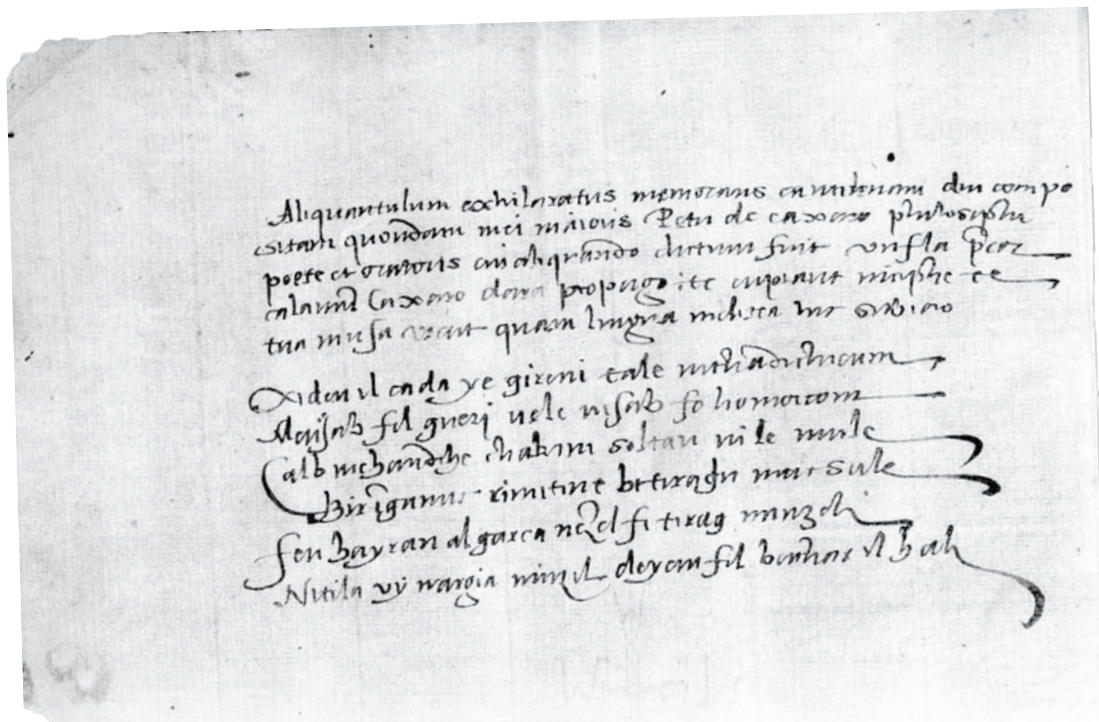 Aliquantulum exhilaratus memorans cantilenam diu compo
sitam quondam mei maioris Petri de caxaro philosophi
poete et oratoris cui aliquando dictum fuit
Caxaro clara propago ite
tua musa quam lingua hic
Xideu il cada ye gireni tale nichadithicum
Mensab fil gueri uele nisab fo homorcom
Calb mehandihe chakim soltan ui le mule
Bir imgamic rimitine betiragin mucsule
fen hayran al garca nenzel fi tirag minzeli
Nitila vy nargia ninzil deyem fil bachar il hali